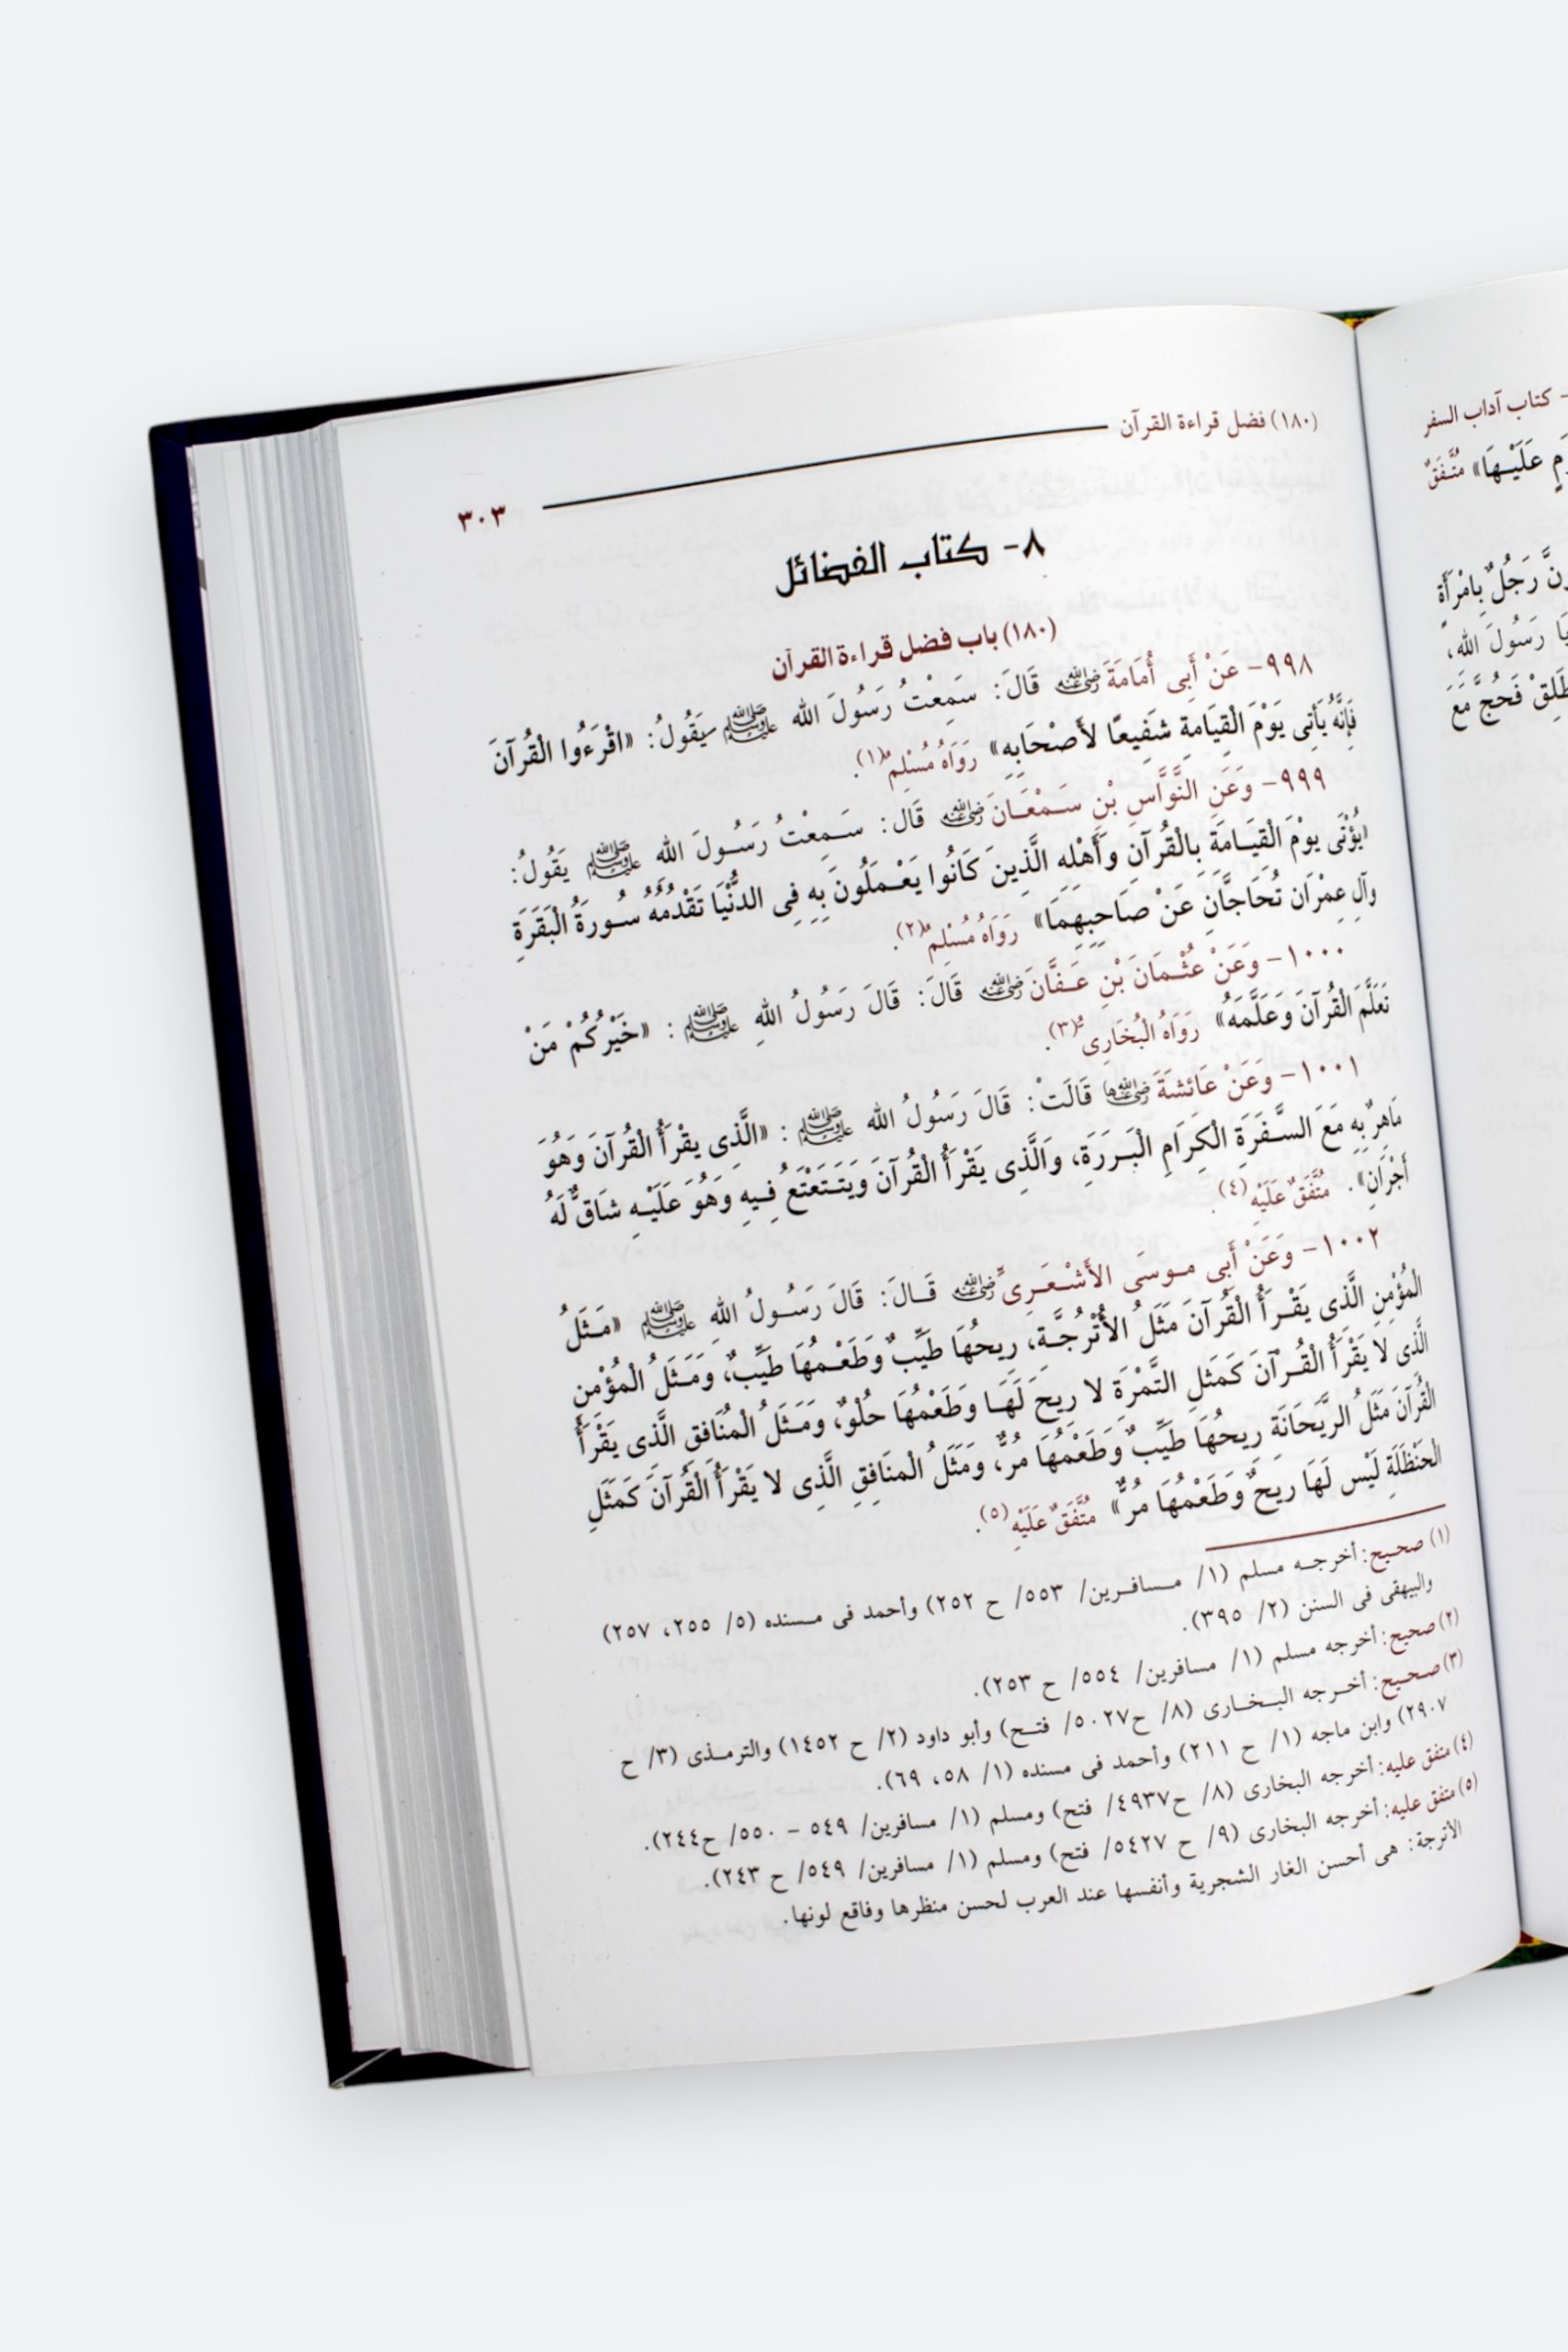 - كتاب آداب السفر
عَلَيْهَا» مُتَّفَقٌ
رَجُلٌ بِامْرَأَةٍ
يَا رَسُولَ الله،
فَحُجَّ مَعَ
(١٨٠) فضل قراءة القرآن
٣٠٣
٨- كتاب الفضائل
(١٨٠) باب فضل قراءة القرآن
٩٩٨- عَنْ أَبِى أُمَامَةَ رضي الله عنه قَالَ: سَمِعْتُ رَسُولَ الله ﷺ يَقُولُ: «اقْرَءُوا الْقُرآنَ
فَإِنَّهُ يَأْتِى يَوْمَ الْقِيَامَةِ شَفِيعًا لأَصْحَابِهِ» رَوَاهُ مُسْلِمٌ(١).
٩٩٩- وَعَنِ النَّوَّاسِ بْنِ سَمْعَانَ رضي الله عنه قَال: سَمِعْتُ رَسُولَ الله ﷺ يَقُولُ:
«يُؤْتَى يوْمَ الْقِيَامَةِ بِالْقُرآنِ وَأَهْلِهِ الَّذِينَ كَانُوا يَعْمَلُونَ بِهِ فِى الدُّنْيَا تَقْدُمُهُ سُورَةُ الْبَقَرَةِ
وَآلِ عِمْرَان تُحَاجَّانِ عَنْ صَاحِبِهِمَا» رَوَاهُ مُسْلِمٌ(٢).
١٠٠٠- وَعَنْ عُثْمَانَ بْنِ عَفَّانَ رضي الله عنه قَالَ: قَالَ رَسُولُ اللهِ ﷺ: «خَيْرُكُمْ مَنْ
تَعَلَّمَ الْقُرآنَ وَعَلَّمَهُ» رَوَاهُ الْبُخَارِىُّ(٣).
١٠٠١- وَعَنْ عَائشَةَ رضي الله عنها قَالَتْ: قَالَ رَسُولُ الله ﷺ: «الَّذِى يقْرَأُ الْقُرآنَ وَهُوَ
مَاهِرٌ بِهِ مَعَ السَّفَرَةِ الْكِرَامِ الْبَرَرَةِ، وَالَّذِى يَقْرَأُ الْقُرآنَ وَيَتَتَعْتَعُ فِيهِ وَهُوَ عَلَيْهِ شَاقٌّ لَهُ
أَجْرَانِ». مُتَّفَقٌ عَلَيْهِ(٤).
١٠٠٢- وَعَنْ أَبِى موسَى الأَشْعَرِىِّ رضي الله عنه قَالَ: قَالَ رَسُولُ اللهِ ﷺ «مَثَلُ
الْمُؤْمِنِ الَّذِى يَقْرَأُ الْقُرآنَ مَثَلُ الأُتْرُجَّةِ، رِيحُهَا طَيِّبٌ وَطَعْمُهَا طَيِّبٌ، وَمَثَلُ الْمُؤْمِنِ
الَّذِى لا يَقْرَأُ الْقُرآنَ كَمَثَلِ التَّمْرَةِ لا رِيحَ لَهَا وَطَعْمُهَا حُلْوٌ، وَمَثَلُ الْمُنَافِقِ الَّذِى يَقْرَأُ
الْقُرآنَ مَثَلُ الرَّيحَانَةِ رِيحُهَا طَيِّبٌ وَطَعْمُهَا مُرٌّ، وَمَثَلُ الْمنَافِقِ الَّذِى لا يَقْرَأُ الْقُرآنَ كَمَثَلِ
الْحَنْظَلَةِ لَيْس لَهَا رِيحٌ وَطَعْمُهَا مُرٌّ» مُتَّفَقٌ عَلَيْهِ(٥).
(١) صحيح: أخرجه مسلم (١/ مسافرين/ ٥٥٣/ ح ٢٥٢) وأحمد فى مسنده (٥/ ٢٥٥، ٢٥٧)
والبيهقى فى السنن (٢/ ٣٩٥).
(٢) صحيح: أخرجه مسلم (١/ مسافرين/ ٥٥٤/ ح ٢٥٣).
(٣) صحيح: أخرجه البخارى (٨/ ح٥٠٢٧/ فتح) وأبو داود (٢/ ح ١٤٥٢) والترمذى (٣/ ح
٢٩٠٧) وابن ماجه (١/ ح ٢١١) وأحمد فى مسنده (١/ ٥٨، ٦٩).
(٤) متفق عليه: أخرجه البخارى (٨/ ح٤٩٣٧/ فتح) ومسلم (١/ مسافرين/ ٥٤٩ - ٥٥٠/ ح٢٤٤).
(٥) متفق عليه: أخرجه البخارى (٩/ ح ٥٤٢٧/ فتح) ومسلم (١/ مسافرين/ ٥٤٩/ ح ٢٤٣).
الأترجة: هى أحسن الغار الشجرية وأنفسها عند العرب لحسن منظرها وفاقع لونها.